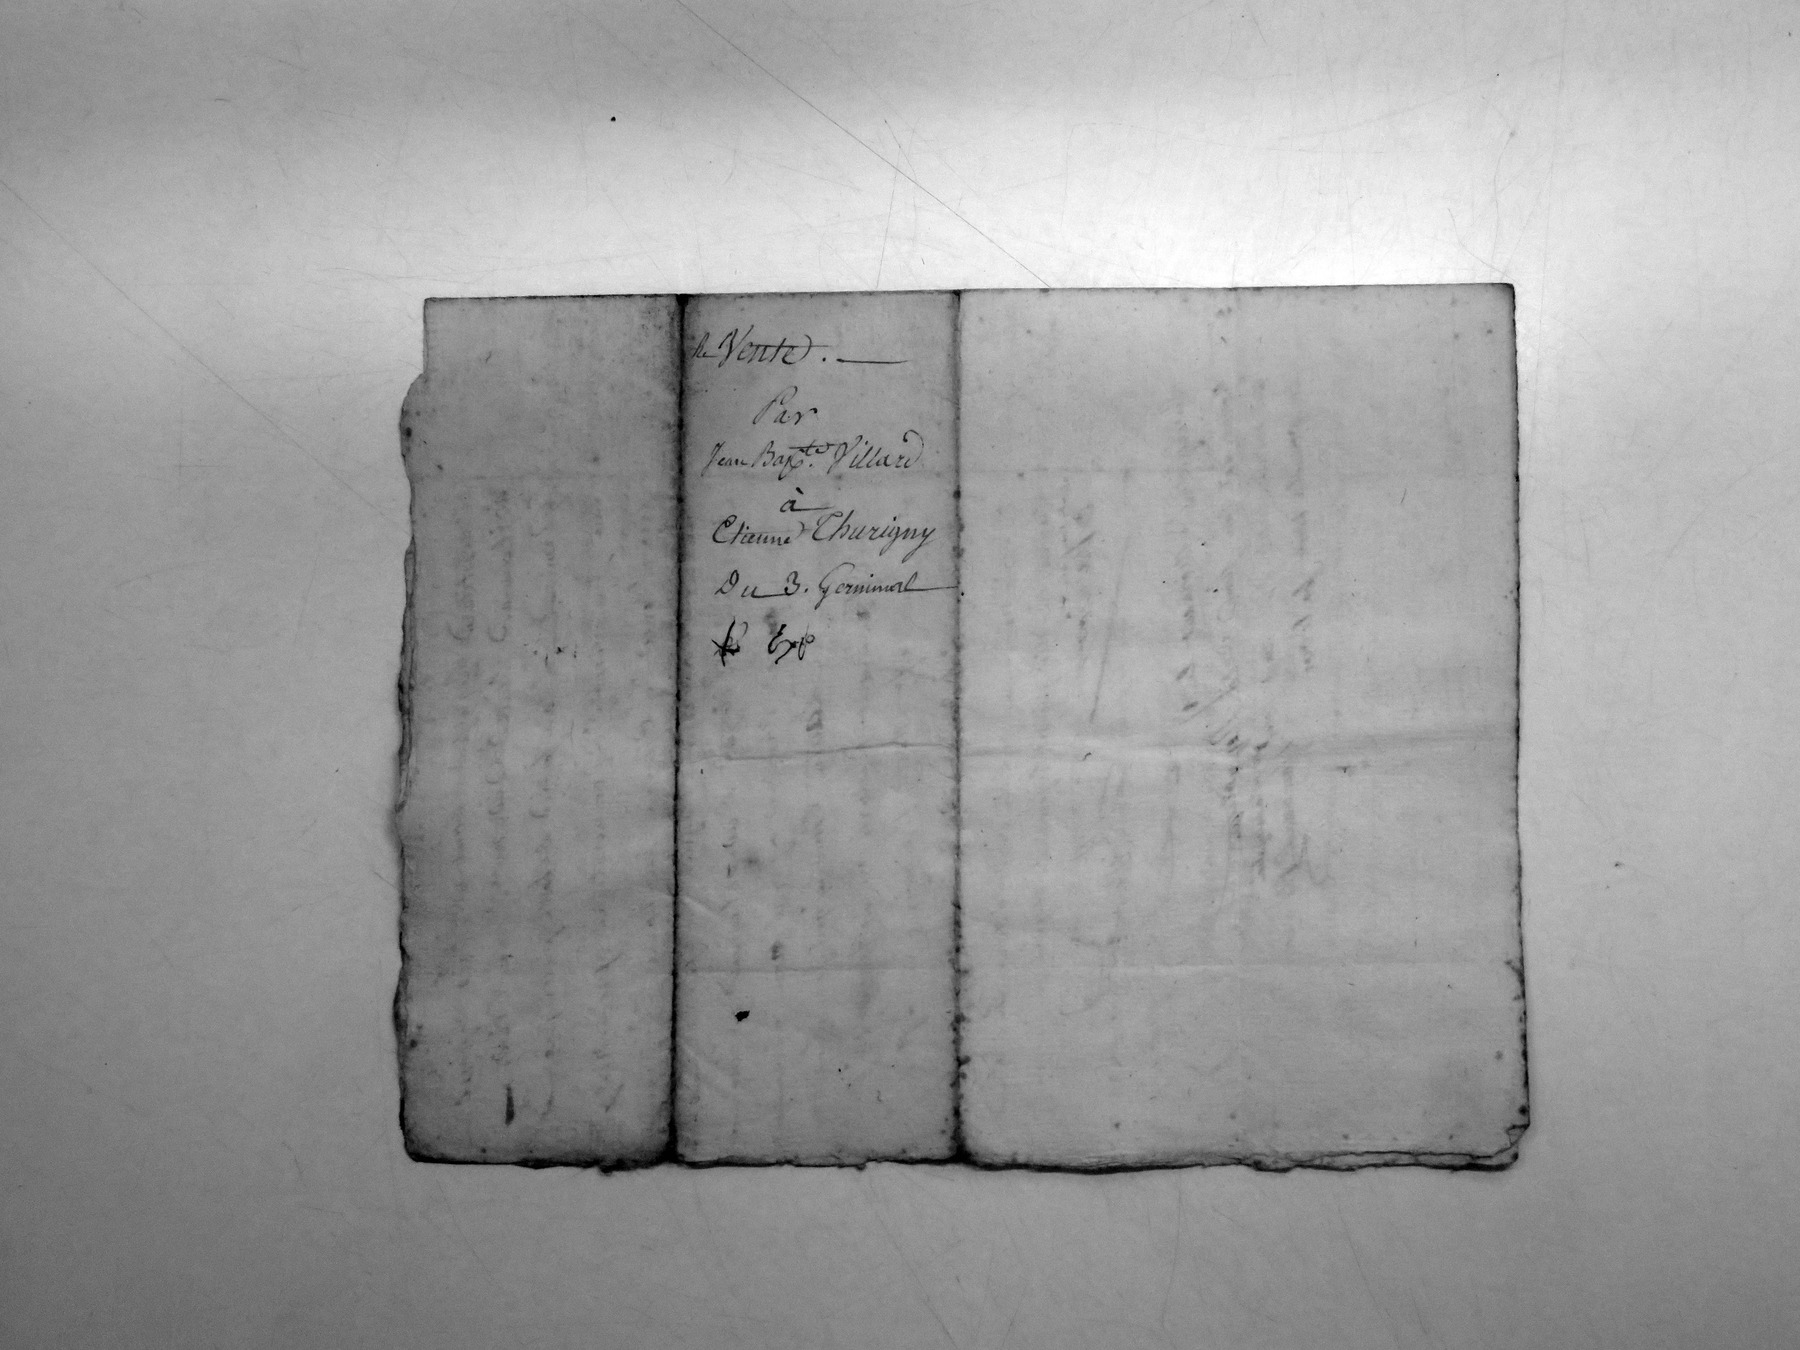 Re Vente. —
Par
Jean Bapte. Villard
à
Etienne Thurigny
Du 3. Germinal
Exp